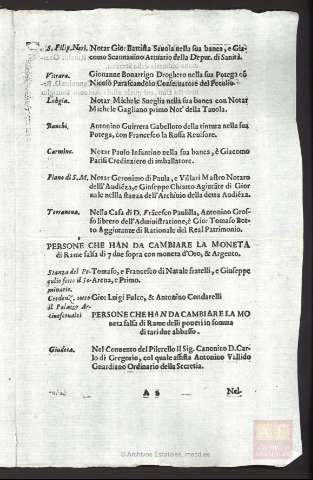 S. Filip. Neri. Notar Gio: Battista Savola nella sua banca, e Gia-
como Scannanino Attuario della Deput. di Sanità.
Vitrara. Giouanne Bonarrigo Droghero nella sua Potega cõ
Nicolò Parascandolo Conseruatore del Petusio.
Loggia. Notar Michele Sueglia nella sua banca con Notar
Michele Gagliano primo Notʳ della Tauola.
Banchi. Antonino Guirrera Gabelloto della tintura nella sua
Potega, con Francesco la Rossa Reuisore.
Carmine. Notar Paulo Infantino nella sua banca, è Giacomo
Parisi Credinziero di imballatore.
Piano di S. M. Notar Geronimo di Paula, e Villari Mastro Notaro
dell'Audiẽza, e Giuseppe Chianto Agiutãte di Gior
nale nella stanza dell'Archiuio della detta Audiẽza.
Terranoua. Nella Casa di D. Frãcesco Paulilla, Antonino Gros-
so libero dell'Administratione, è Gio: Tomaso Bot-
to Aggiutante di Rationale del Real Patrimonio.
PERSONE CHE HAN DA CAMBIARE LA MONETA
di Rame falsa di 7 due sopra con moneta d'Oro, & Argento.
Stanza del Pe- Tomaso, e Francesco di Natale fratelli, e Giuseppe
gulio sotto il Se- Arena, e Primo.
minario.
Credenz. sotto Gio: Luigi Fulco, & Antonino Condarelli
il Palazzo Ar-
ciuescouale
PERSONE CHE HAN DA CAMBIARE LA MO
neta falsa di Rame delli poueri in somma
di tarì due abbasso.
Giudeca. Nel Conuento del Pilerello Il Sig. Canonico D. Car-
lo di Gregorio, col quale assista Antonino Vallido
Guardiano Ordinario della Secretia.
Nel
© Archivos Estatales, mecd.es